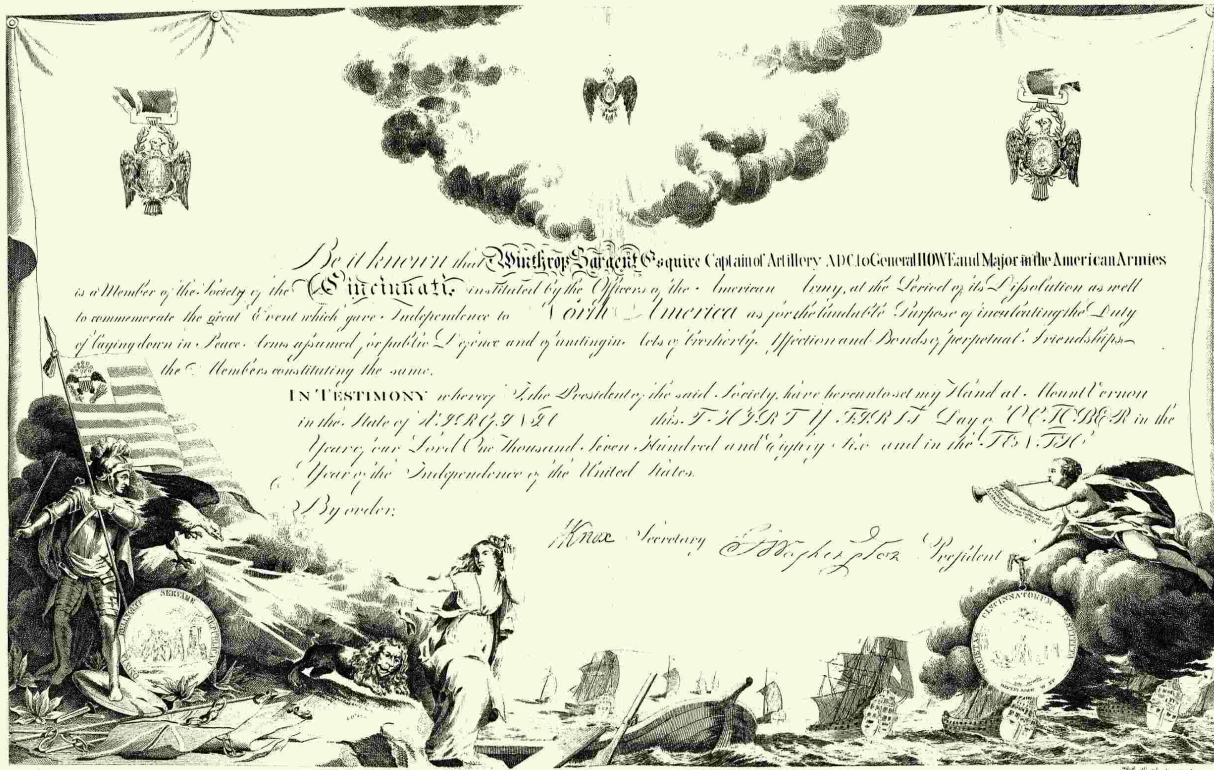 Be it known that Winthrop Sargent Esquire Captain of Artillery ADC. to General HOWE and Major in the American Armies
is a Member of the Society of the Cincinnati, instituted by the Officers of the American Army, at the Period of its Dissolution as well
to commemorate the great Event which gave Independence to North America as for the laudable Purpose of inculcating the Duty
of laying down in Peace Arms assumed for public Defence and of uniting in Acts of brotherly Affection and Bonds of perpetual Friendship
the Members constituting the same.
IN TESTIMONY whereof I the President of the said Society, have hereunto set my Hand at Mount Vernon
in the State of VIRGINIA this THIRTY FIRST Day of OCTOBER in the
Year of our Lord One Thousand Seven Hundred and Eighty Six and in the TENTH
Year of the Independence of the United States.
By order;
HKnox Secretary G Washington President
SERVARE
CINCINNATORUM